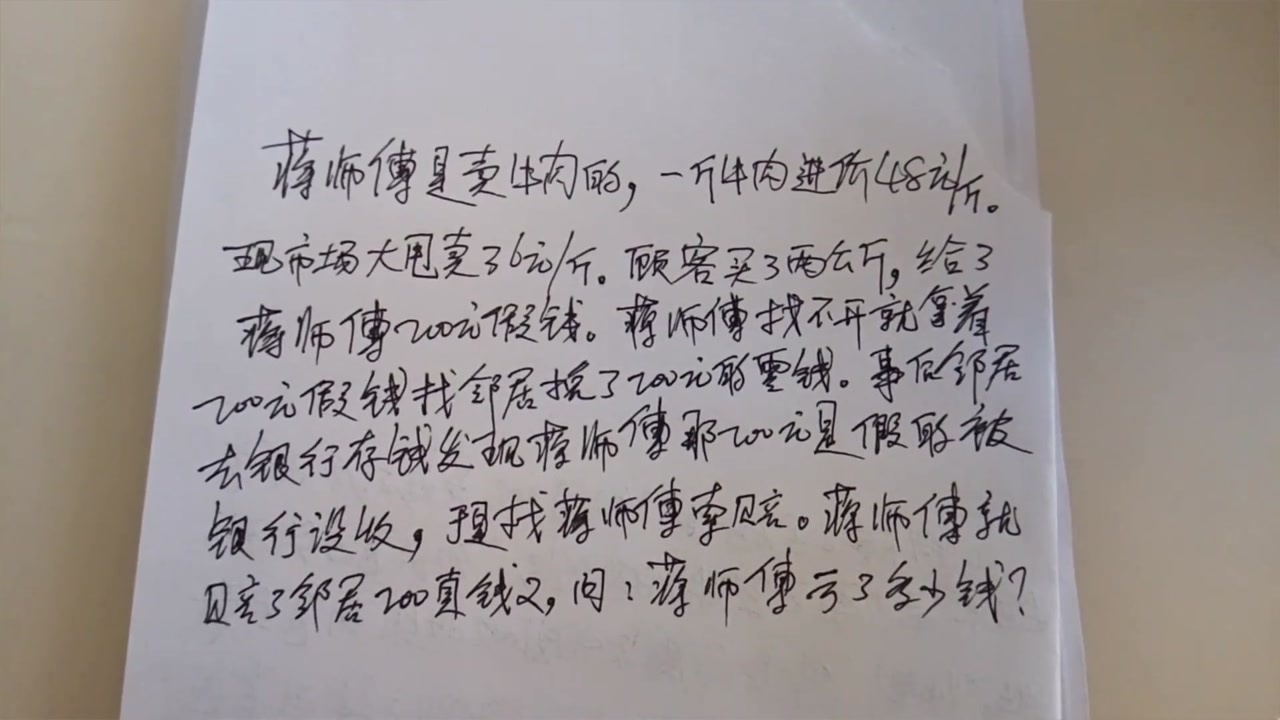 蒋师傅是卖牛肉的，一斤牛肉进价48元/斤。
现市场大甩卖36元/斤。顾客买了两公斤，给了
蒋师傅200元假钱。蒋师傅找不开就拿着
200元假钱找邻居换了200元的零钱。事后邻居
去银行存钱发现蒋师傅那200元是假的被
银行没收，于是找蒋师傅索赔。蒋师傅就
赔了邻居200真钱，问：蒋师傅亏了多少钱？